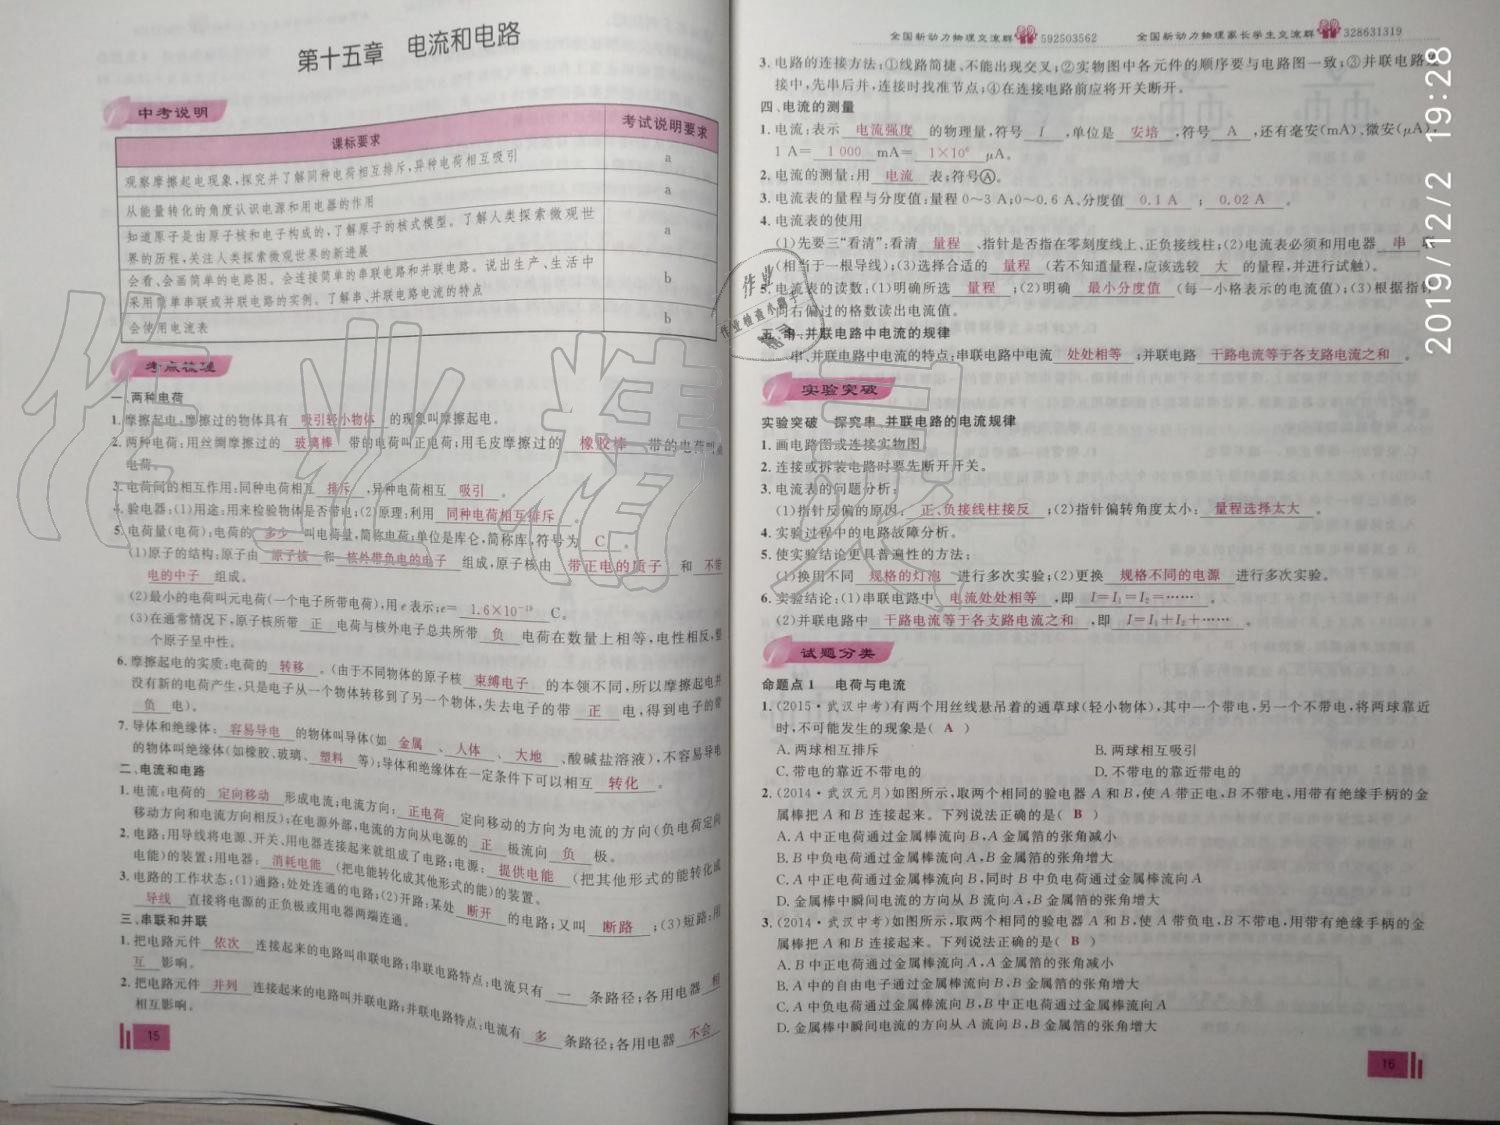 第十五章 电流和电路
中考说明
课标要求 考试说明要求
观察摩擦起电现象,探究并了解同种电荷相互排斥,异种电荷相互吸引 a
从能量转化的角度认识电源和用电器的作用 a
知道原子是由原子核和电子构成的,了解原子的核式模型。了解人类探索微观世
界的历程,关注人类探索微观世界的新进展 a
会看、会画简单的电路图。会连接简单的串联电路和并联电路。说出生产、生活中
采用简单串联或并联电路的实例。了解串、并联电路电流的特点 b
会使用电流表 b
考点梳理
一、两种电荷
1.摩擦起电:摩擦过的物体具有 吸引轻小物体 的现象叫摩擦起电。
2.两种电荷:用丝绸摩擦过的 玻璃棒 带的电荷叫正电荷;用毛皮摩擦过的 橡胶棒 带的电荷叫负
电荷。
3.电荷间的相互作用:同种电荷相互 排斥 ,异种电荷相互 吸引 。
4.验电器:(1)用途:用来检验物体是否带电;(2)原理:利用 同种电荷相互排斥 。
5.电荷量(电荷):电荷的 多少 叫电荷量,简称电荷;单位是库仑,简称库,符号为 C 。
(1)原子的结构:原子由 原子核 和 核外带负电的电子 组成,原子核由 带正电的质子 和 不带
电的中子 组成。
(2)最小的电荷叫元电荷(一个电子所带电荷),用e表示;e= 1.6×10⁻¹⁹ C。
(3)在通常情况下,原子核所带 正 电荷与核外电子总共所带 负 电荷在数量上相等,电性相反,整
个原子呈中性。
6.摩擦起电的实质:电荷的 转移 。(由于不同物体的原子核 束缚电子 的本领不同,所以摩擦起电并
没有新的电荷产生,只是电子从一个物体转移到了另一个物体,失去电子的带 正 电,得到电子的带
负 电)。
7.导体和绝缘体: 容易导电 的物体叫导体(如 金属 、 人体 、 大地 、酸碱盐溶液),不容易导电
的物体叫绝缘体(如橡胶、玻璃、 塑料 等);导体和绝缘体在一定条件下可以相互 转化 。
二、电流和电路
1.电流:电荷的 定向移动 形成电流;电流方向: 正电荷 定向移动的方向为电流的方向(负电荷定向
移动方向和电流方向相反);在电源外部,电流的方向从电源的 正 极流向 负 极。
2.电路:用导线将电源、开关、用电器连接起来就组成了电路;电源: 提供电能 (把其他形式的能转化成
电能)的装置;用电器: 消耗电能 (把电能转化成其他形式的能)的装置。
3.电路的工作状态:(1)通路:处处连通的电路;(2)开路:某处 断开 的电路;又叫 断路 ;(3)短路:用
导线 直接将电源的正负极或用电器两端连通。
三、串联和并联
1.把电路元件 依次 连接起来的电路叫串联电路;串联电路特点:电流只有 一 条路径;各用电器 相
互 影响。
2.把电路元件 并列 连接起来的电路叫并联电路;并联电路特点:电流有 多 条路径;各用电器 不会
相互影响。
15
全国新动力物理交流群592503562 全国新动力物理家长学生交流群328631319
3.电路的连接方法:①线路简捷、不能出现交叉;②实物图中各元件的顺序要与电路图一致;③并联电路连
接中,先串后并,连接时找准节点;④在连接电路前应将开关断开。
四、电流的测量
1.电流:表示 电流强度 的物理量,符号 I ,单位是 安培 ,符号 A ,还有毫安(mA)、微安(μA),
1 A= 1 000 mA= 1×10⁶ μA。
2.电流的测量:用 电流 表;符号Ⓐ。
3.电流表的量程与分度值:量程 0~3 A;0~0.6 A,分度值 0.1 A ; 0.02 A 。
4.电流表的使用
(1)先要三“看清”:看清 量程 、指针是否指在零刻度线上、正负接线柱;(2)电流表必须和用电器 串 联
(相当于一根导线);(3)选择合适的 量程 (若不知道量程,应该选较 大 的量程,并进行试触)。
5.电流表的读数:(1)明确所选 量程 ;(2)明确 最小分度值 (每一小格表示的电流值);(3)根据指针
向右偏过的格数读出电流值。
五、串、并联电路中电流的规律
串、并联电路中电流的特点:串联电路中电流 处处相等 ;并联电路 干路电流等于各支路电流之和 。
实验突破
实验突破 探究串、并联电路的电流规律
1.画电路图或连接实物图
2.连接或拆装电路时要先断开开关。
3.电流表的问题分析:
(1)指针反偏的原因: 正、负接线柱接反 ;(2)指针偏转角度太小: 量程选择太大 。
4.实验过程中的电路故障分析。
5.使实验结论更具普遍性的方法:
(1)换用不同 规格的灯泡 进行多次实验;(2)更换 规格不同的电源 进行多次实验。
6.实验结论:(1)串联电路中 电流处处相等 ,即 I=I₁=I₂=…… 。
(2)并联电路中 干路电流等于各支路电流之和 ,即 I=I₁+I₂+…… 。
试题分类
命题点1 电荷与电流
1.(2015·武汉中考)有两个用丝线悬吊着的通草球(轻小物体),其中一个带电,另一个不带电,将两球靠近
时,不可能发生的现象是( A )
A.两球相互排斥 B.两球相互吸引
C.带电的靠近不带电的 D.不带电的靠近带电的
2.(2014·武汉元月)如图所示,取两个相同的验电器 A 和 B,使 A 带正电,B 不带电,用带有绝缘手柄的金
属棒把 A 和 B 连接起来。下列说法正确的是( B )
A.A 中正电荷通过金属棒流向 B,A 金属箔的张角减小
B.B 中负电荷通过金属棒流向 A,B 金属箔的张角增大
C.A 中正电荷通过金属棒流向 B,同时 B 中负电荷通过金属棒流向 A
D.金属棒中瞬间电流的方向从 B 流向 A,B 金属箔的张角增大
3.(2014·武汉中考)如图所示,取两个相同的验电器 A 和 B,使 A 带负电,B 不带电,用带有绝缘手柄的金
属棒把 A 和 B 连接起来。下列说法正确的是( B )
A.B 中正电荷通过金属棒流向 A,A 金属箔的张角减小
B.A 中的自由电子通过金属棒流向 B,B 金属箔的张角增大
C.A 中负电荷通过金属棒流向 B,B 中正电荷通过金属棒流向 A
D.金属棒中瞬间电流的方向从 A 流向 B,B 金属箔的张角增大
16
2019/12/2 19:28
作业精灵
作业
作业检查小助手
精灵